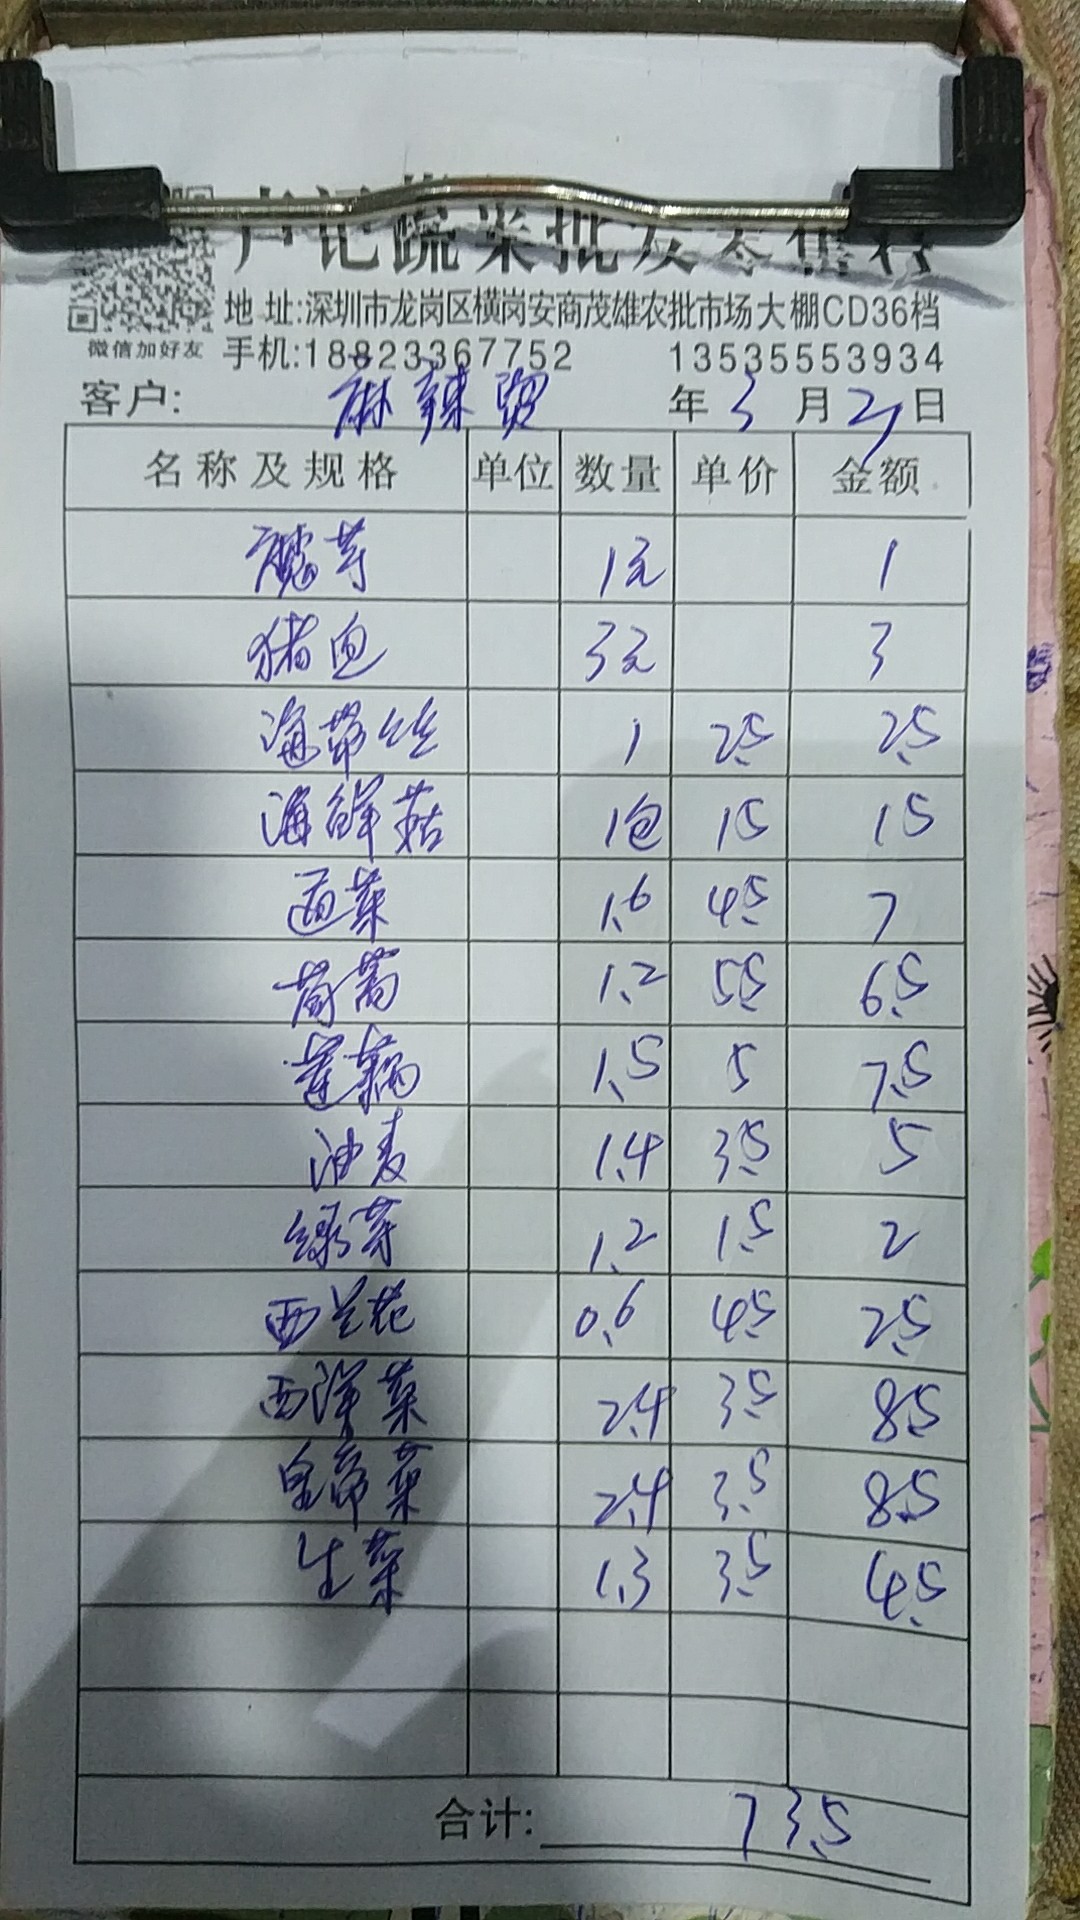 卢记蔬菜批发零售行
地 址:深圳市龙岗区横岗安商茂雄农批市场大棚CD36档
微信加好友 手机:18823367752 13535553934
客户: 麻辣烫 年 3 月 21 日
名称及规格 单位 数量 单价 金额
魔芋 1元 1
猪血 3元 3
海带丝 1 2.5 2.5
海鲜菇 1包 15 15
1.6 4.5 7
茼蒿 1.2 5.5 6.5
莲藕 1.5 5 7.5
油麦 1.4 3.5 5
绿芽 1.2 1.5 2
西兰花 0.6 4.5 2.5
西洋菜 2.4 3.5 8.5
皇帝菜 2.4 3.5 8.5
生菜 1.3 3.5 4.5
合计: 73.5